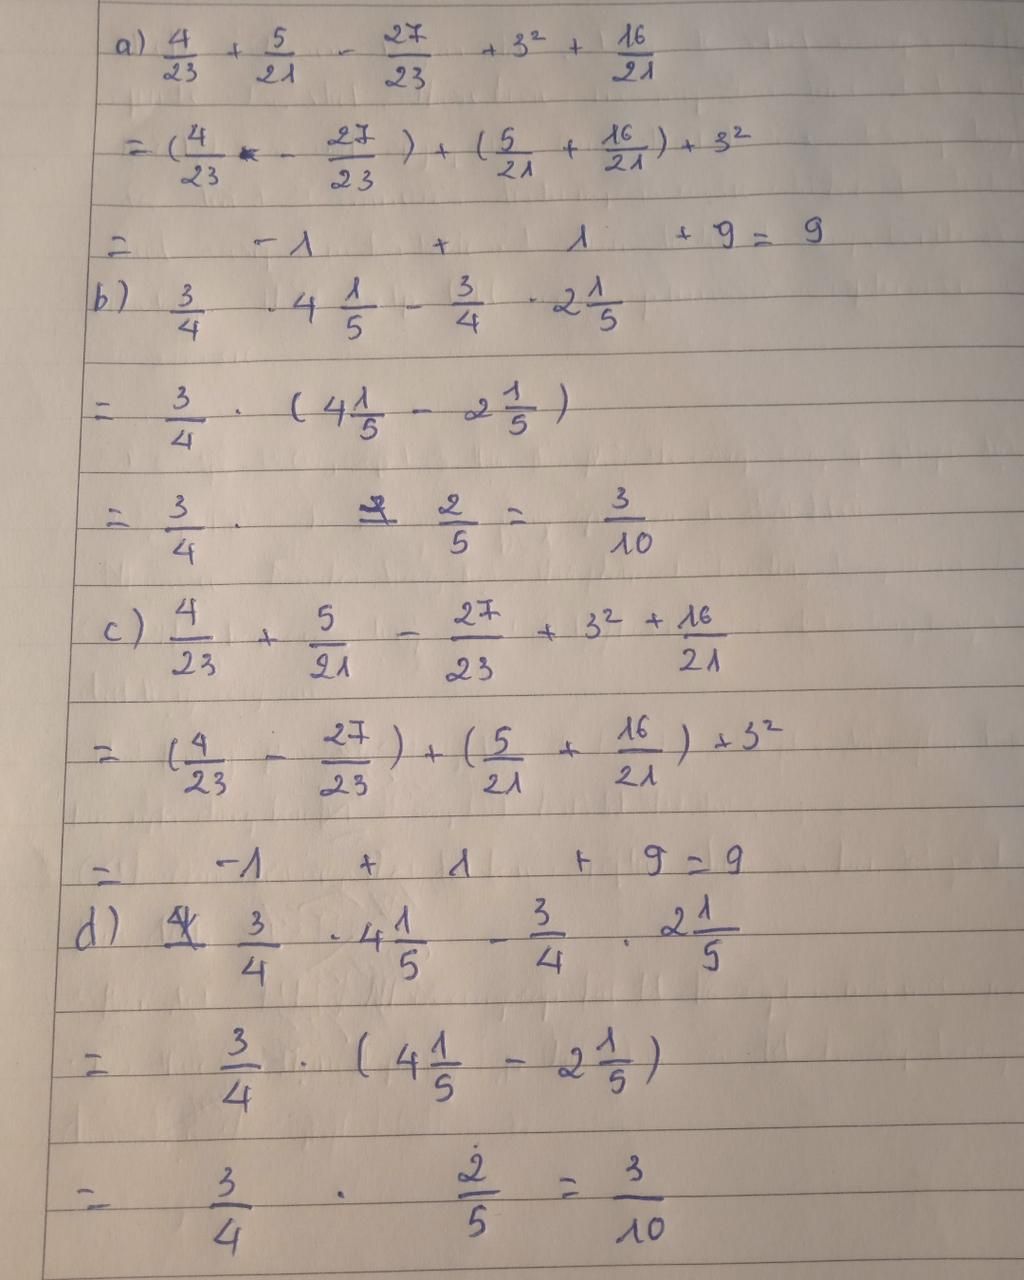 a) 4/23 + 5/21 - 27/23 + 3² + 16/21
= (4/23 - 27/23) + (5/21 + 16/21) + 3²
= -1 + 1 + 9 = 9
b) 3/4 . 4 1/5 - 3/4 . 2 1/5
= 3/4 . (4 1/5 - 2 1/5)
= 3/4 . 2/5 = 3/10
c) 4/23 + 5/21 - 27/23 + 3² + 16/21
= (4/23 - 27/23) + (5/21 + 16/21) + 3²
= -1 + 1 + 9 = 9
d) 3/4 . 4 1/5 - 3/4 . 2 1/5
= 3/4 . (4 1/5 - 2 1/5)
= 3/4 . 2/5 = 3/10